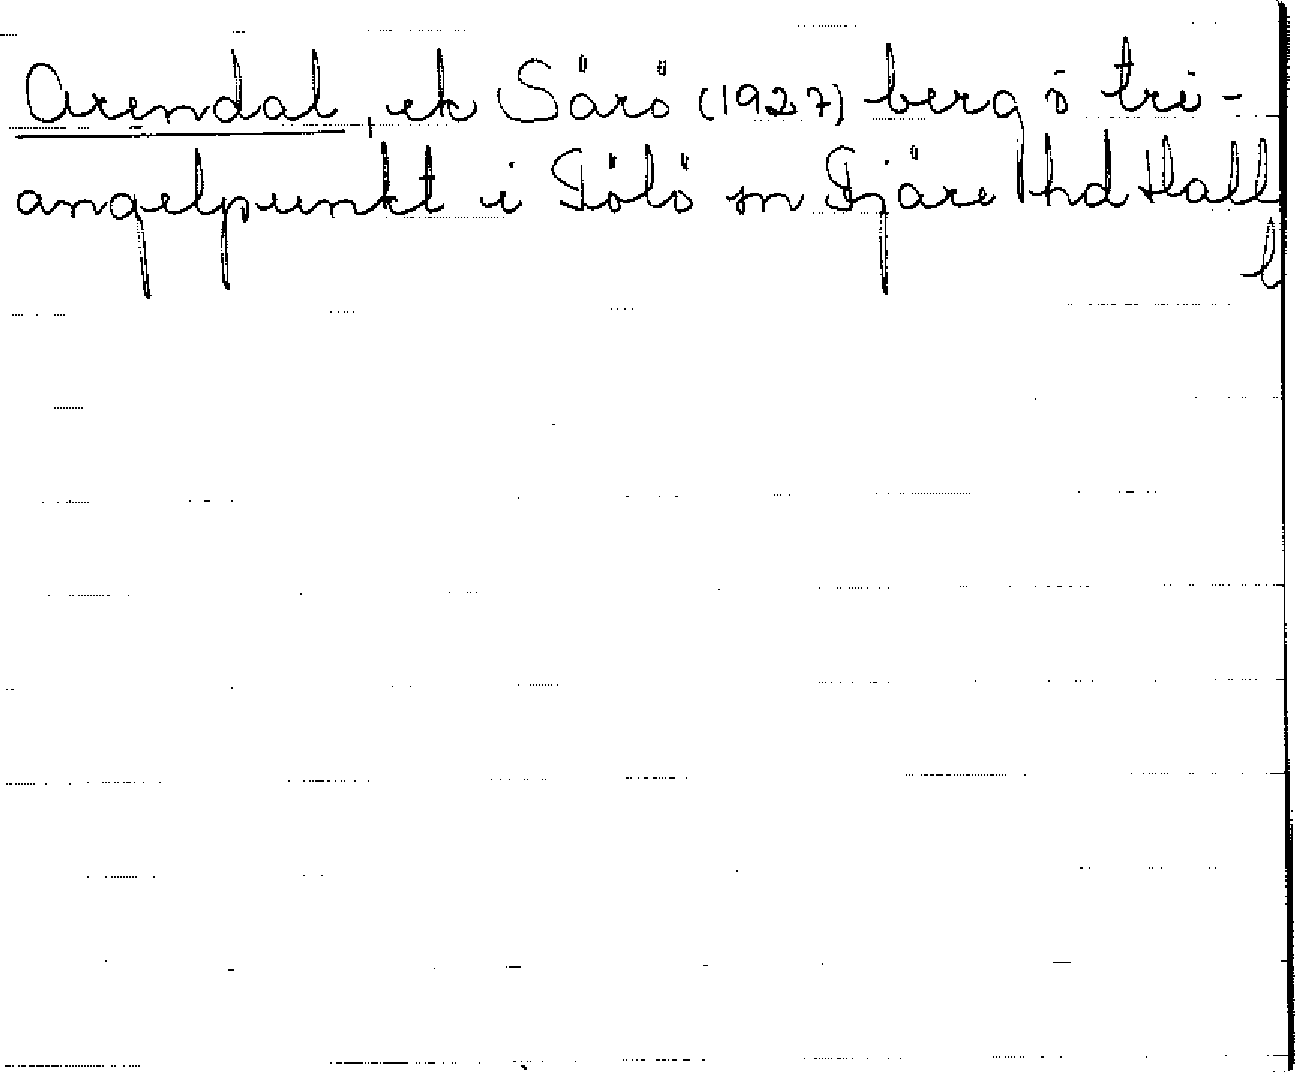 Arendal, ek Särö (1927) berg ö tri-
angelpunkt i Tölö sn Fjäre hd Hall
l